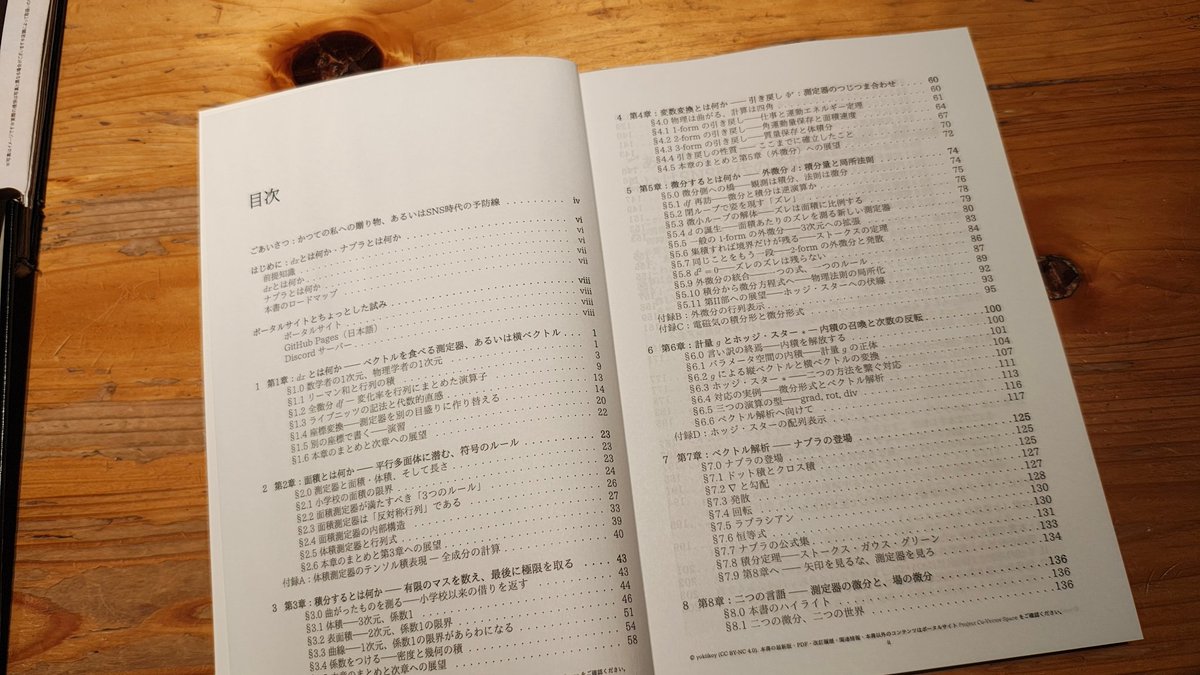 目次
ごあいさつ：かつての私への贈り物、あるいはSNS時代の予防線 iv
はじめに：dxとは何か・ナブラとは何か vi
前提知識 vi
dxとは何か vi
ナブラとは何か vii
本書のロードマップ vii
ポータルサイトとちょっとした試み viii
ポータルサイト viii
GitHub Pages（日本語） viii
Discord サーバー viii
1 第1章：dx とは何か——ベクトルを食べる測定器、あるいは横ベクトル 1
§1.0 数学者の1次元、物理学者の1次元 1
§1.1 リーマン和と行列の積 3
§1.2 全微分 df—変化率を行列にまとめた演算子 9
§1.3 ライプニッツの記法と代数的直感 13
§1.4 座標変換——測定器を別の目盛りに作り替える 14
§1.5 別の座標で書く——演習 20
§1.6 本章のまとめと次章への展望 22
2 第2章：面積とは何か——平行多面体に潜む、符号のルール 23
§2.0 測定器と面積・体積、そして長さ 23
§2.1 小学校の面積の限界 23
§2.2 面積測定器が満たすべき「3つのルール」 24
§2.3 面積測定器は「反対称行列」である 26
§2.4 面積測定器の内部構造 27
§2.5 体積測定器と行列式 33
§2.6 本章のまとめと第3章への展望 39
付録A：体積測定器のテンソル積表現—全成分の計算 40
3 第3章：積分するとは何か——有限のマスを数え、最後に極限を取る 43
§3.0 曲がったものを測る——小学校以来の借りを返す 43
§3.1 体積——3次元、係数1 44
§3.2 表面積——2次元、係数1の限界 46
§3.3 曲線——1次元、係数1の限界があらわになる 51
§3.4 係数をつける——密度と幾何の積 54
本章のまとめと次章への展望 58
4 第4章：変数変換とは何か——引き戻し ψ*：測定器のつじつま合わせ 60
§4.0 物理は曲がる、計算は四角 60
§4.1 1-form の引き戻し——仕事と運動エネルギー定理 61
§4.2 2-form の引き戻し——角運動量保存と面積速度 64
§4.3 3-form の引き戻し——質量保存と体積分 67
§4.4 引き戻しの性質——ここまでに確立したこと 70
§4.5 本章のまとめと第5章（外微分）への展望 72
5 第5章：微分するとは何か——外微分 d：積分量と局所法則 74
§5.0 微分側への橋——観測は積分、法則は微分 74
§5.1 df 再訪——微分と積分は逆演算か 75
§5.2 閉ループで姿を現す「ズレ」 76
§5.3 微小ループの解体——ズレは面積に比例する 78
§5.4 d の誕生——面積あたりのズレを測る新しい測定器 79
§5.5 一般の 1-form の外微分——3次元への拡張 80
§5.6 集積すれば境界だけが残る——ストークスの定理 83
§5.7 同じことをもう一段——2-form の外微分と発散 84
§5.8 d²=0——ズレのズレは残らない 86
§5.9 外微分の統合——一つの式、一つのルール 87
§5.10 積分から微分方程式へ——物理法則の局所化 89
§5.11 第II部への展望——ホッジ・スターへの伏線 92
付録B：外微分の行列表示 93
付録C：電磁気の積分形と微分形式 95
6 第6章：計量 g とホッジ・スター ⋆—内積の召喚と次数の反転 100
§6.0 言い訳の終焉——内積を解放する 100
§6.1 パラメータ空間の内積——計量 g の正体 101
§6.2 g による縦ベクトルと横ベクトルの変換 104
§6.3 ホッジ・スター ⋆——二つの方法を繋ぐ対応 107
§6.4 対応の実例——微分形式とベクトル解析 111
§6.5 三つの演算の型——grad, rot, div 113
§6.6 ベクトル解析へ向けて 116
付録D：ホッジ・スターの配列表示 117
7 第7章：ベクトル解析——ナブラの登場 125
§7.0 ナブラの登場 125
§7.1 ドット積とクロス積 125
§7.2 ∇ と勾配 127
§7.3 発散 127
§7.4 回転 128
§7.5 ラプラシアン 130
§7.6 恒等式 130
§7.7 ナブラの公式集 131
§7.8 積分定理——ストークス・ガウス・グリーン 133
§7.9 第8章へ——矢印を見るな、測定器を見ろ 134
8 第8章：二つの言語——測定器の微分と、場の微分 136
§8.0 本書のハイライト 136
§8.1 二つの微分、二つの世界
© yokitkoy (CC BY-NC 4.0). 本書の最新版・PDF・改訂履歴・関連情報・本書以外のコンテンツはポータルサイト Project Co-Vector Space をご確認ください。
ii